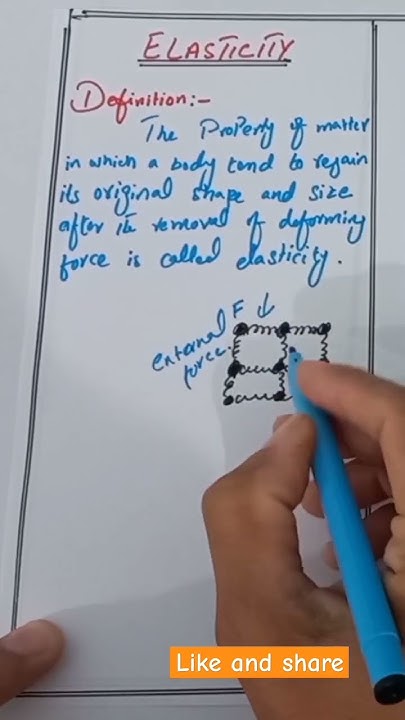 ELASTICITY
Definition:-
The Property of matter
in which a body tend to regain
its original shape and size
after its removal of deforming
force is called elasticity.
F
external
force
Like and share